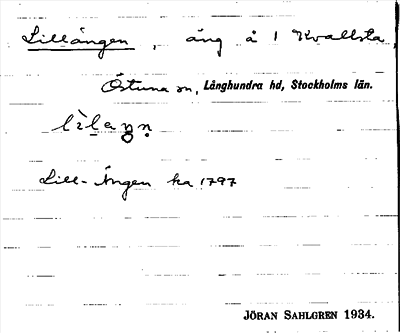 Lillängen, äng å 1 Kvallsta,
Östuna sn, Långhundra hd, Stockholms län.
Lill-Ängen ka 1797
JÖRAN SAHLGREN 1934.